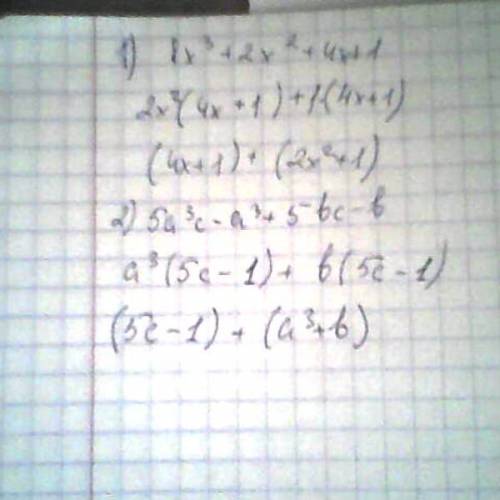 1) 8x³+2x²+4x+1
2x²(4x+1)+1·(4x+1)
(4x+1)+(2x²+1)
2) 5a³c-a³+5bc-b
a³(5c-1)+b(5c-1)
(5c-1)+(a³+b)